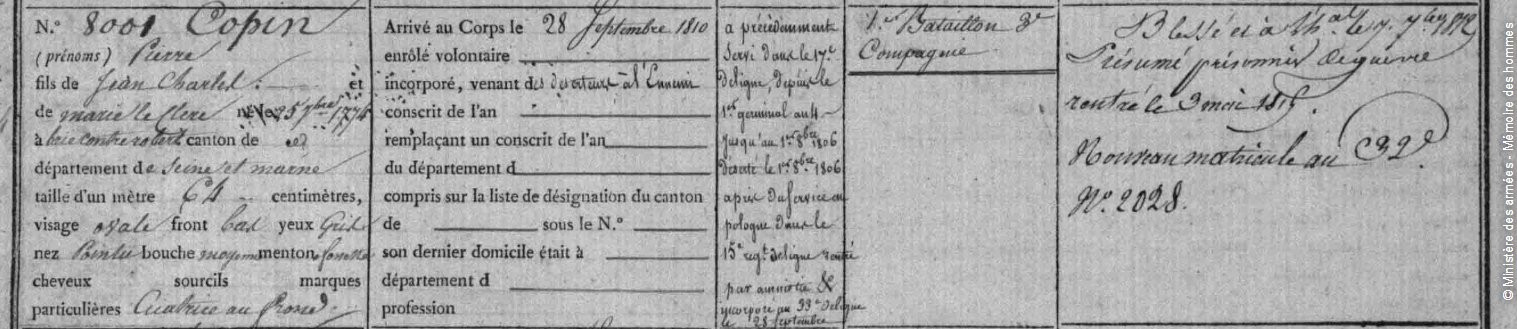 N.° 8001 Copin
(prénoms) Pierre
fils de Jean Charles et
de marie le Clerc né le 25 7bre 1774
à brie contre robert canton de
département de Seine et marne
taille d'un mètre 64 centimètres,
visage ovale front bas yeux Gris
nez Pointu bouche moyenne menton
cheveux sourcils marques
particulières Cicatrice au front.
Arrivé au Corps le 28 Septembre 1810
enrôlé volontaire
incorporé, venant des déserteurs à l'Ennemi
conscrit de l'an
remplaçant un conscrit de l'an
du département d
compris sur la liste de désignation du canton
de sous le N.°
son dernier domicile était à
département d
profession
a précédemment
Servi dans le 17e
de ligne, depuis le
1er germinal an 4
Jusqu'au 1er 8bre 1806
déserté le 1er 8bre 1806
a pris du Service en
pologne dans le
15e regt de ligne rentré
par amnistie &
incorporé au 33e de ligne
le 28 septembre
1er Bataillon 3e
Compagnie
Blessé et à l'hal. le 17 7bre 1812
Présumé prisonnier de guerre
rentré le 3 mai 1815.
Nouveau matricule au 32e
N.° 2028.
© Ministère des armées - Mémoire des hommes